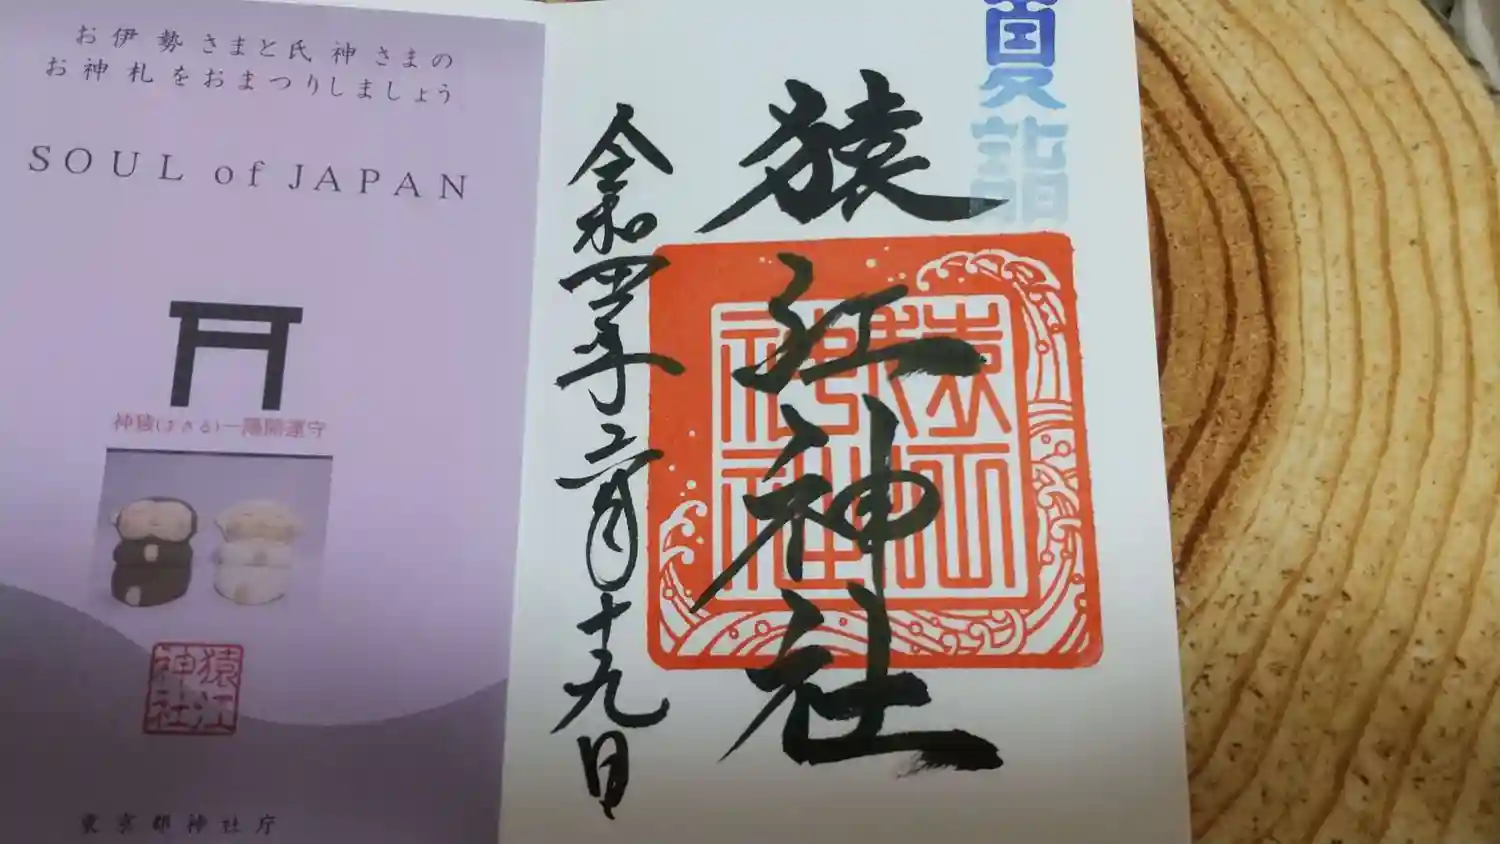 お伊勢さまと氏神さまの
お神札をおまつりしましょう
SOUL of JAPAN
神猿(まさる)一陽開運守
猿江
神社
東京都神社庁
夏詣
猿江神社
猿江
神社
令和四年 月十九日